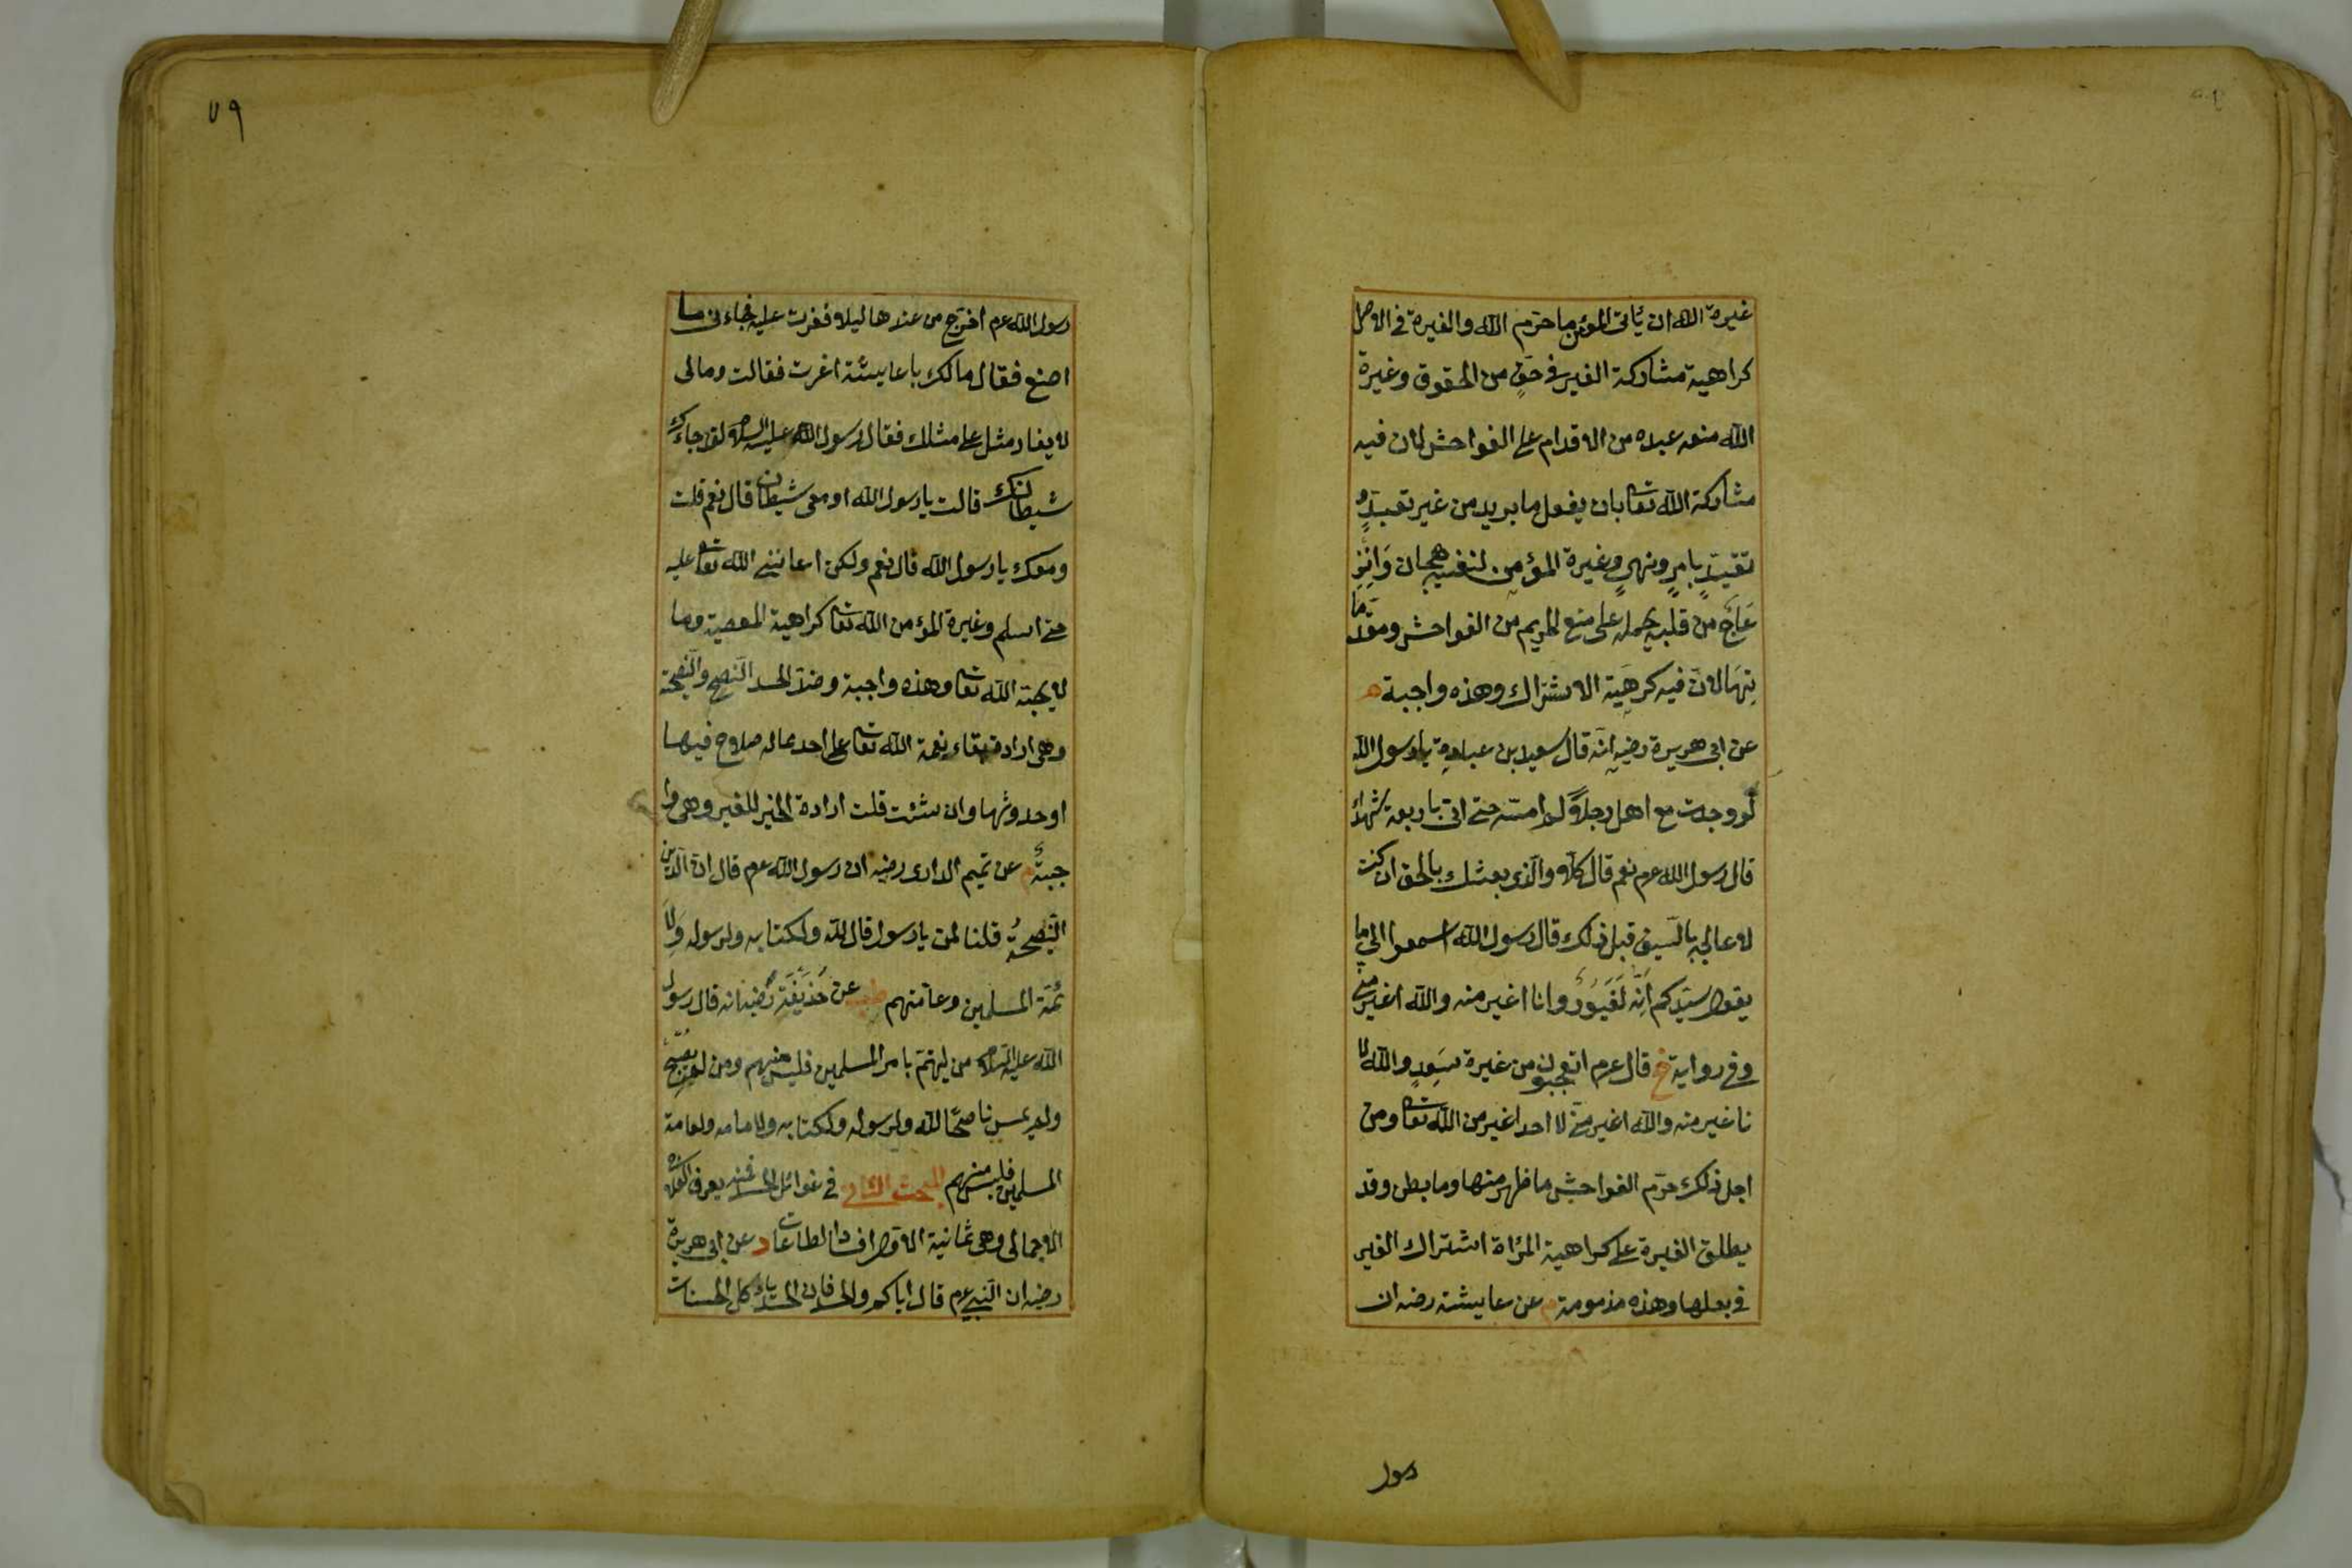 غيرة الله ان يأتى المؤمن ما حرّم الله والغيرة فى الاصل
كراهية مشاركة الغير فى حقٍ من الحقوق وغيرة
الله منعه عبده من الاقدام على الفواحش لان فيه
مشاركة الله تعا بان يفعل ما يريد من غير تعبدٍ و
تقيّدٍ بامرٍ ونهىٍ وغيرة المؤمن لنفسه هيجان وانز
عاج من قلبه يحمله على منع الحريم من الفواحش ومقدّما
تها لان فيه كرهية الاشتراك وهذه واجبة م
عن ابى هريرة رضيه انّه قال سعيد بن عبادة يا رسول الله
لو وجدت مع اهلى رجلاً لم امسّه حتى اتى باربعة شهداء
قال رسول الله عرم نعم قال كلّا والّذى بعثك بالحق ان كنت
لاعالجه بالسّيف قبل ذلك قال رسول الله اسمعوا الى ما
يقول سيّدكم انّه لَغَيُورٌ وانا اغير منه والله اغير منّى
وفى رواية خ قال عرم اتعجبون من غيرة سَعدٍ والله لا
نا غير منه والله اغير منّى لا احد اغير من الله تعا ومن
اجل ذلك حرّم الفواحش ما ظهر منها وما بطن وقد
يطلق الغيرة على كراهية المرأة اشتراك الغير
فى بعلها وهذه مذمومة م عن عايشة رضه ان
رسول
٧٩
رسول الله عرم اخرج من عندها ليلا فغرت عليه فجاء فى ما
اصنع فقال مالك يا عايشة اغرت فقالت ومالى
لا يغار مثلى على مثلك فقال رسول الله عليه السلام لقد جاءك
شيطانك قالت يا رسول الله او معى شيطان قال نعم قلت
ومعك يا رسول الله قال نعم ولكن اعاننى الله تعا عليه
حتى اسلم وغيرة المؤمن الله تعا كراهية المعصية وما
لا يحبّه الله تعا وهذه واجبة وضدّ الحسد النّصح والنّصيحة
وهى ارادة بقاء نعمة الله تعا على احد مما له صلاح فيها
او حدوثها وان شئت قلت ارادة الخير للغير وهى وا
جبةٌ م عن تميم الدارى رضيه ان رسول الله عرم قال انّ الدّين
النّصيحةُ قلنا لمن يا رسول قال لله ولكتابه ولرسوله ولا
ئمّة المسلمين وعامّتهم طب عن حُذَيْفَة رضيه انه قال رسول
الله عليه السّلام من ليهتمّ بامر المسلمين فليس منهم ومن لم يُصبح
ولم يمس ناصحًا لله ولرسوله ولكتابه ولامامه ولعامة
المسلمين فليس منهم المبحث الثانى فى غوائل الحسد فمنه يعرف العلاج
الاجمالى وهى ثمانية الاول افساد الطاعات د عن ابى هريرة
رضيه ان النّبى عرم قال اياكم والحسد فان الحسد يأكل الحسنات